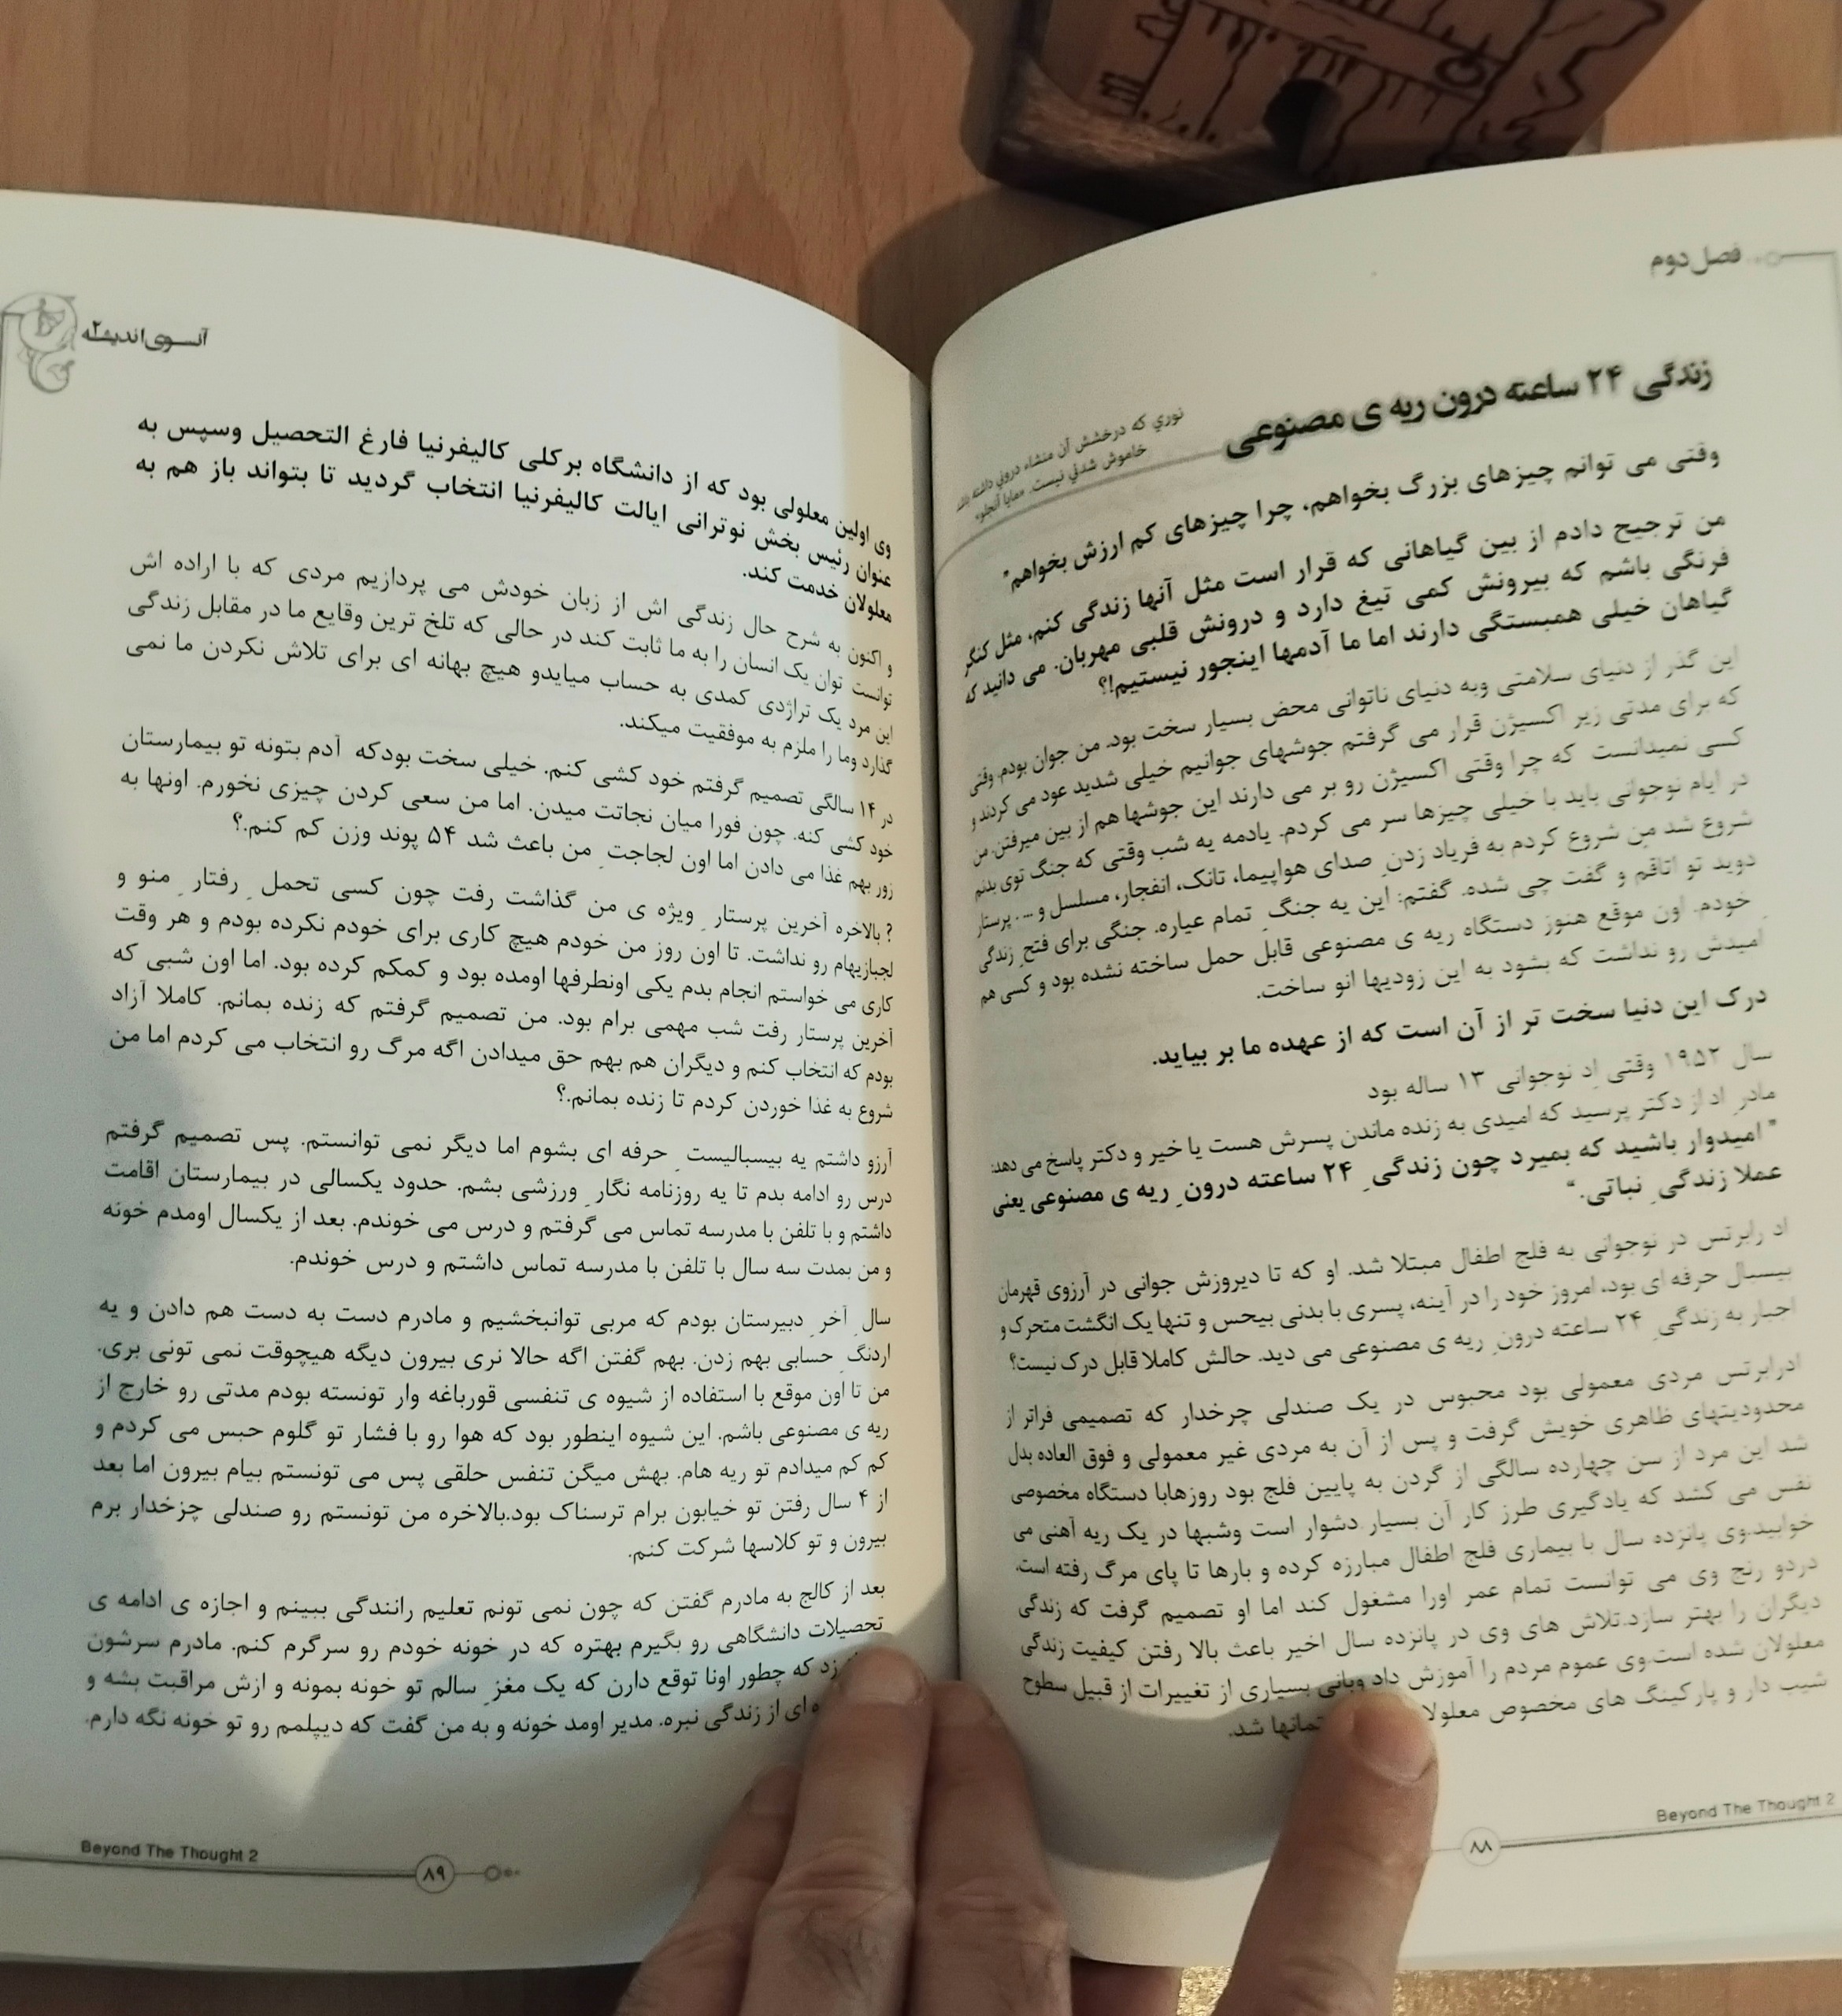 فصل دوم
زندگی ۲۴ ساعته درون ریه ی مصنوعی
نوري که درخشش آن منشاء دروني داشته باشد
خاموش شدني نیست. «مایا آنجلو»
وقتی می توانم چیزهای بزرگ بخواهم، چرا چیزهای کم ارزش بخواهم"
من ترجیح دادم از بین گیاهانی که قرار است مثل آنها زندگی کنم، مثل کنگر
فرنگی باشم که بیرونش کمی تیغ دارد و درونش قلبی مهربان. می دانید که
گیاهان خیلی همبستگی دارند اما ما آدمها اینجور نیستیم!؟
این گذر از دنیای سلامتی وبه دنیای ناتوانی محض بسیار سخت بود. من جوان بودم. وقتی
که برای مدتی زیر اکسیژن قرار می گرفتم جوشهای جوانیم خیلی شدید عود می کردند و
کسی نمیدانست که چرا وقتی اکسیژن رو بر می دارند این جوشها هم از بین میرفتن. من
در ایام نوجوانی باید با خیلی چیزها سر می کردم. یادمه یه شب وقتی که جنگ توی بدنم
شروع شد من شروع کردم به فریاد زدنِ صدای هواپیما، تانک، انفجار، مسلسل و ... . پرستار
دوید تو اتاقم و گفت چی شده. گفتم: این یه جنگِ تمام عیاره. جنگی برای فتحِ زندگی
خودم. اون موقع هنوز دستگاه ریه ی مصنوعی قابل حمل ساخته نشده بود و کسی هم
امیدش رو نداشت که بشود به این زودیها انو ساخت.
درک این دنیا سخت تر از آن است که از عهده ما بر بیاید.
سال ۱۹۵۲ وقتی اِد نوجوانی ۱۳ ساله بود
مادرِ اد از دکتر پرسید که امیدی به زنده ماندن پسرش هست یا خیر و دکتر پاسخ می دهد:
" امیدوار باشید که بمیرد چون زندگیِ ۲۴ ساعته درونِ ریه ی مصنوعی یعنی
عملا زندگیِ نباتی."
اد رابرتس در نوجوانی به فلج اطفال مبتلا شد. او که تا دیروزش جوانی در آرزوی قهرمان
بیسبال حرفه ای بود، امروز خود را در آینه، پسری با بدنی بیحس و تنها یک انگشت متحرک و
اجبار به زندگیِ ۲۴ ساعته درونِ ریه ی مصنوعی می دید. حالش کاملا قابل درک نیست؟
ادرابرتس مردی معمولی بود محبوس در یک صندلی چرخدار که تصمیمی فراتر از
محدودیتهای ظاهری خویش گرفت و پس از آن به مردی غیر معمولی و فوق العاده بدل
شد این مرد از سن چهارده سالگی از گردن به پایین فلج بود روزهابا دستگاه مخصوصی
نفس می کشد که یادگیری طرز کار آن بسیار دشوار است وشبها در یک ریه آهنی می
خوابید.وی پانزده سال با بیماری فلج اطفال مبارزه کرده و بارها تا پای مرگ رفته است.
دردو رنج وی می توانست تمام عمر اورا مشغول کند اما او تصمیم گرفت که زندگی
دیگران را بهتر سازد.تلاش های وی در پانزده سال اخیر باعث بالا رفتن کیفیت زندگی
معلولان شده است.وی عموم مردم را آموزش داد وبانی بسیاری از تغییرات از قبیل سطوح
شیب دار و پارکینگ های مخصوص معلولا تمانها شد.
Beyond The Thought 2
۸۸
آنسوی اندیشه ۲
وی اولین معلولی بود که از دانشگاه برکلی کالیفرنیا فارغ التحصیل وسپس به
عنوان رئیس بخش نوترانی ایالت کالیفرنیا انتخاب گردید تا بتواند باز هم به
معلولان خدمت کند.
و اکنون به شرح حال زندگی اش از زبان خودش می پردازیم مردی که با اراده اش
توانست توان یک انسان را به ما ثابت کند در حالی که تلخ ترین وقایع ما در مقابل زندگی
این مرد یک تراژدی کمدی به حساب میایدو هیچ بهانه ای برای تلاش نکردن ما نمی
گذارد وما را ملزم به موفقیت میکند.
در ۱۴ سالگی تصمیم گرفتم خود کشی کنم. خیلی سخت بودکه آدم بتونه تو بیمارستان
خود کشی کنه. چون فورا میان نجاتت میدن. اما من سعی کردن چیزی نخورم. اونها به
زور بهم غذا می دادن اما اون لجاجتِ من باعث شد ۵۴ پوند وزن کم کنم.؟
؟ بالاخره آخرین پرستارِ ویژه ی من گذاشت رفت چون کسی تحملِ رفتارِ منو و
لجبازیهام رو نداشت. تا اون روز من خودم هیچ کاری برای خودم نکرده بودم و هر وقت
کاری می خواستم انجام بدم یکی اونطرفها اومده بود و کمکم کرده بود. اما اون شبی که
آخرین پرستار رفت شب مهمی برام بود. من تصمیم گرفتم که زنده بمانم. کاملا آزاد
بودم که انتخاب کنم و دیگران هم بهم حق میدادن اگه مرگ رو انتخاب می کردم اما من
شروع به غذا خوردن کردم تا زنده بمانم.؟
آرزو داشتم یه بیسبالیستِ حرفه ای بشوم اما دیگر نمی توانستم. پس تصمیم گرفتم
درس رو ادامه بدم تا یه روزنامه نگارِ ورزشی بشم. حدود یکسالی در بیمارستان اقامت
داشتم و با تلفن با مدرسه تماس می گرفتم و درس می خوندم. بعد از یکسال اومدم خونه
و من بمدت سه سال با تلفن با مدرسه تماس داشتم و درس خوندم.
سالِ آخرِ دبیرستان بودم که مربی توانبخشیم و مادرم دست به دست هم دادن و یه
اردنگِ حسابی بهم زدن. بهم گفتن اگه حالا نری بیرون دیگه هیچوقت نمی تونی بری.
من تا اون موقع با استفاده از شیوه ی تنفسی قورباغه وار تونسته بودم مدتی رو خارج از
ریه ی مصنوعی باشم. این شیوه اینطور بود که هوا رو با فشار تو گلوم حبس می کردم و
کم کم میدادم تو ریه هام. بهش میگن تنفس حلقی پس می تونستم بیام بیرون اما بعد
از ۴ سال رفتن تو خیابون برام ترسناک بود.بالاخره من تونستم رو صندلی چزخدار برم
بیرون و تو کلاسها شرکت کنم.
بعد از کالج به مادرم گفتن که چون نمی تونم تعلیم رانندگی ببینم و اجازه ی ادامه ی
تحصیلات دانشگاهی رو بگیرم بهتره که در خونه خودم رو سرگرم کنم. مادرم سرشون
زد که چطور اونا توقع دارن که یک مغزِ سالم تو خونه بمونه و ازش مراقبت بشه و
ه ای از زندگی نبره. مدیر اومد خونه و به من گفت که دیپلمم رو تو خونه نگه دارم.
Beyond The Thought 2
۸۹